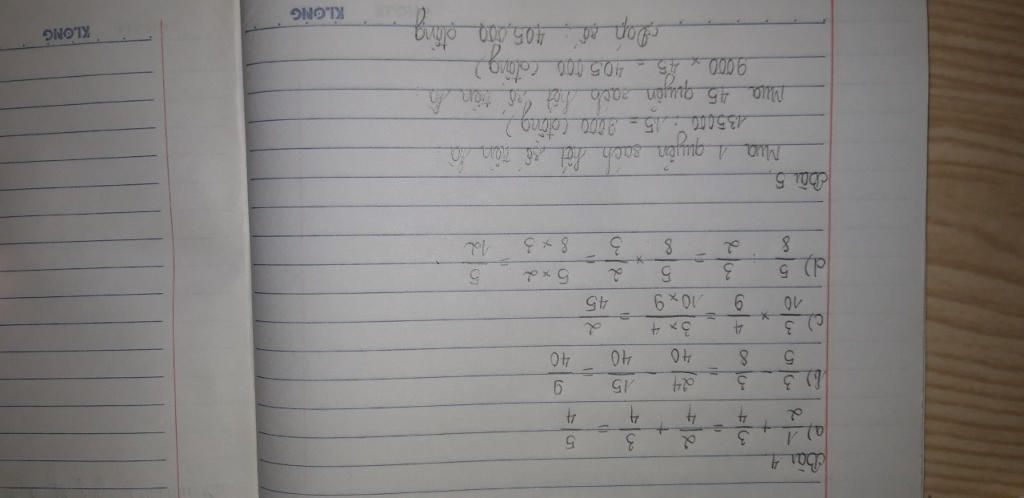 Bài 4
a) 1/2 + 3/4 = 2/4 + 3/4 = 5/4
b) 3/5 - 3/8 = 24/40 - 15/40 = 9/40
c) 3/10 × 4/9 = 3 × 4/10 × 9 = 2/45
d) 5/8 : 3/2 = 5/8 × 2/3 = 5 × 2/8 × 3 = 5/12
Bài 5
Mua 1 quyển sách hết số tiền là :
135000 : 15 = 9000 (đồng)
Mua 45 quyển sách hết số tiền là :
9000 × 45 = 405 000 (đồng)
Đáp số : 405.000 đồng
KLONG
KLONG